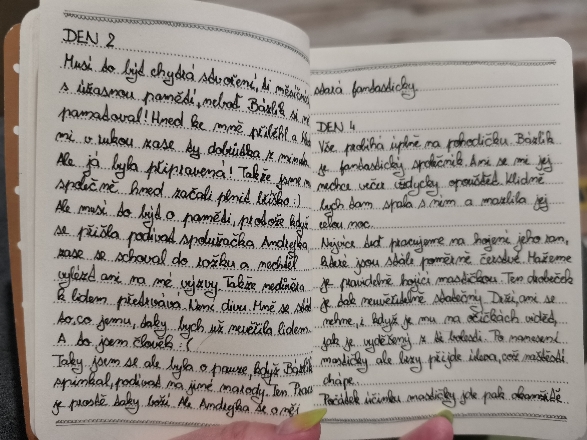 DEN 2
Musí to být chytrá stvoření, ti měsíčníci
s úžasnou pamětí, neboť Bázlík si mě
pamatoval! Hned ke mně přiběhl a
mi v rukou zase ty dobrůtka z minula.
Ale já byla připravená! Takže jsme
společně hned začali plnit bříško :)
Ale musí to být o paměti, protože když
se přišla podívat spolužačka Andrejka
zase se schoval do rožku a nechtěl
vylézt ani na mé výzvy. Takže nedůvěra
k lidem přetrvává. Není divu. Mně se stát
to, co jemu, taky bych už nevěřila lidem.
A to jsem člověk :(
Taky jsem se ale byla o pauze, když Bázlík
spinkal, podívat na jiné marody. Ten
je prostě taky boží. Ale Andrejka se o něj
stará fantasticky.
DEN 4
Vše probíhá úplně na pohodičku. Bázlík
je fantastický společník. Ani se mi jej
nechce večer vždycky opouštět. Klidně
bych tam spala s ním a mazlila jej
celou noc.
Nejvíce teď pracujeme na hojení jeho ran,
které jsou stále poměrně čerstvé. Mažeme
je pravidelně hojící mastičkou. Ten drobeček
je tak neuvěřitelně statečný. Drží, ani se
nehne, i když je mu na očičkách vidět,
jak je vyděšený a ta bolest. Po nanesení
mastičky ale brzy přijde úleva, což naštěstí
chápe.
Počátek účinku mastičky jde pak okamžitě